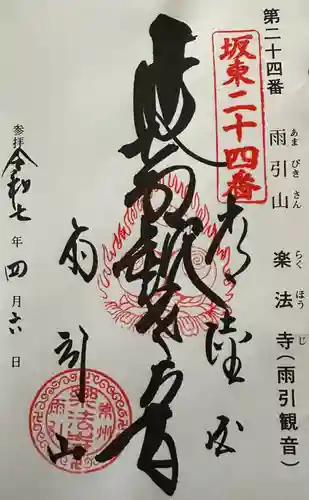 第二十四番 雨引山 楽法寺(雨引観音)
あまびきさん らくほうじ
坂東二十四番
常陸国
延命観世音
雨引山
参拝 令和七年四月六日